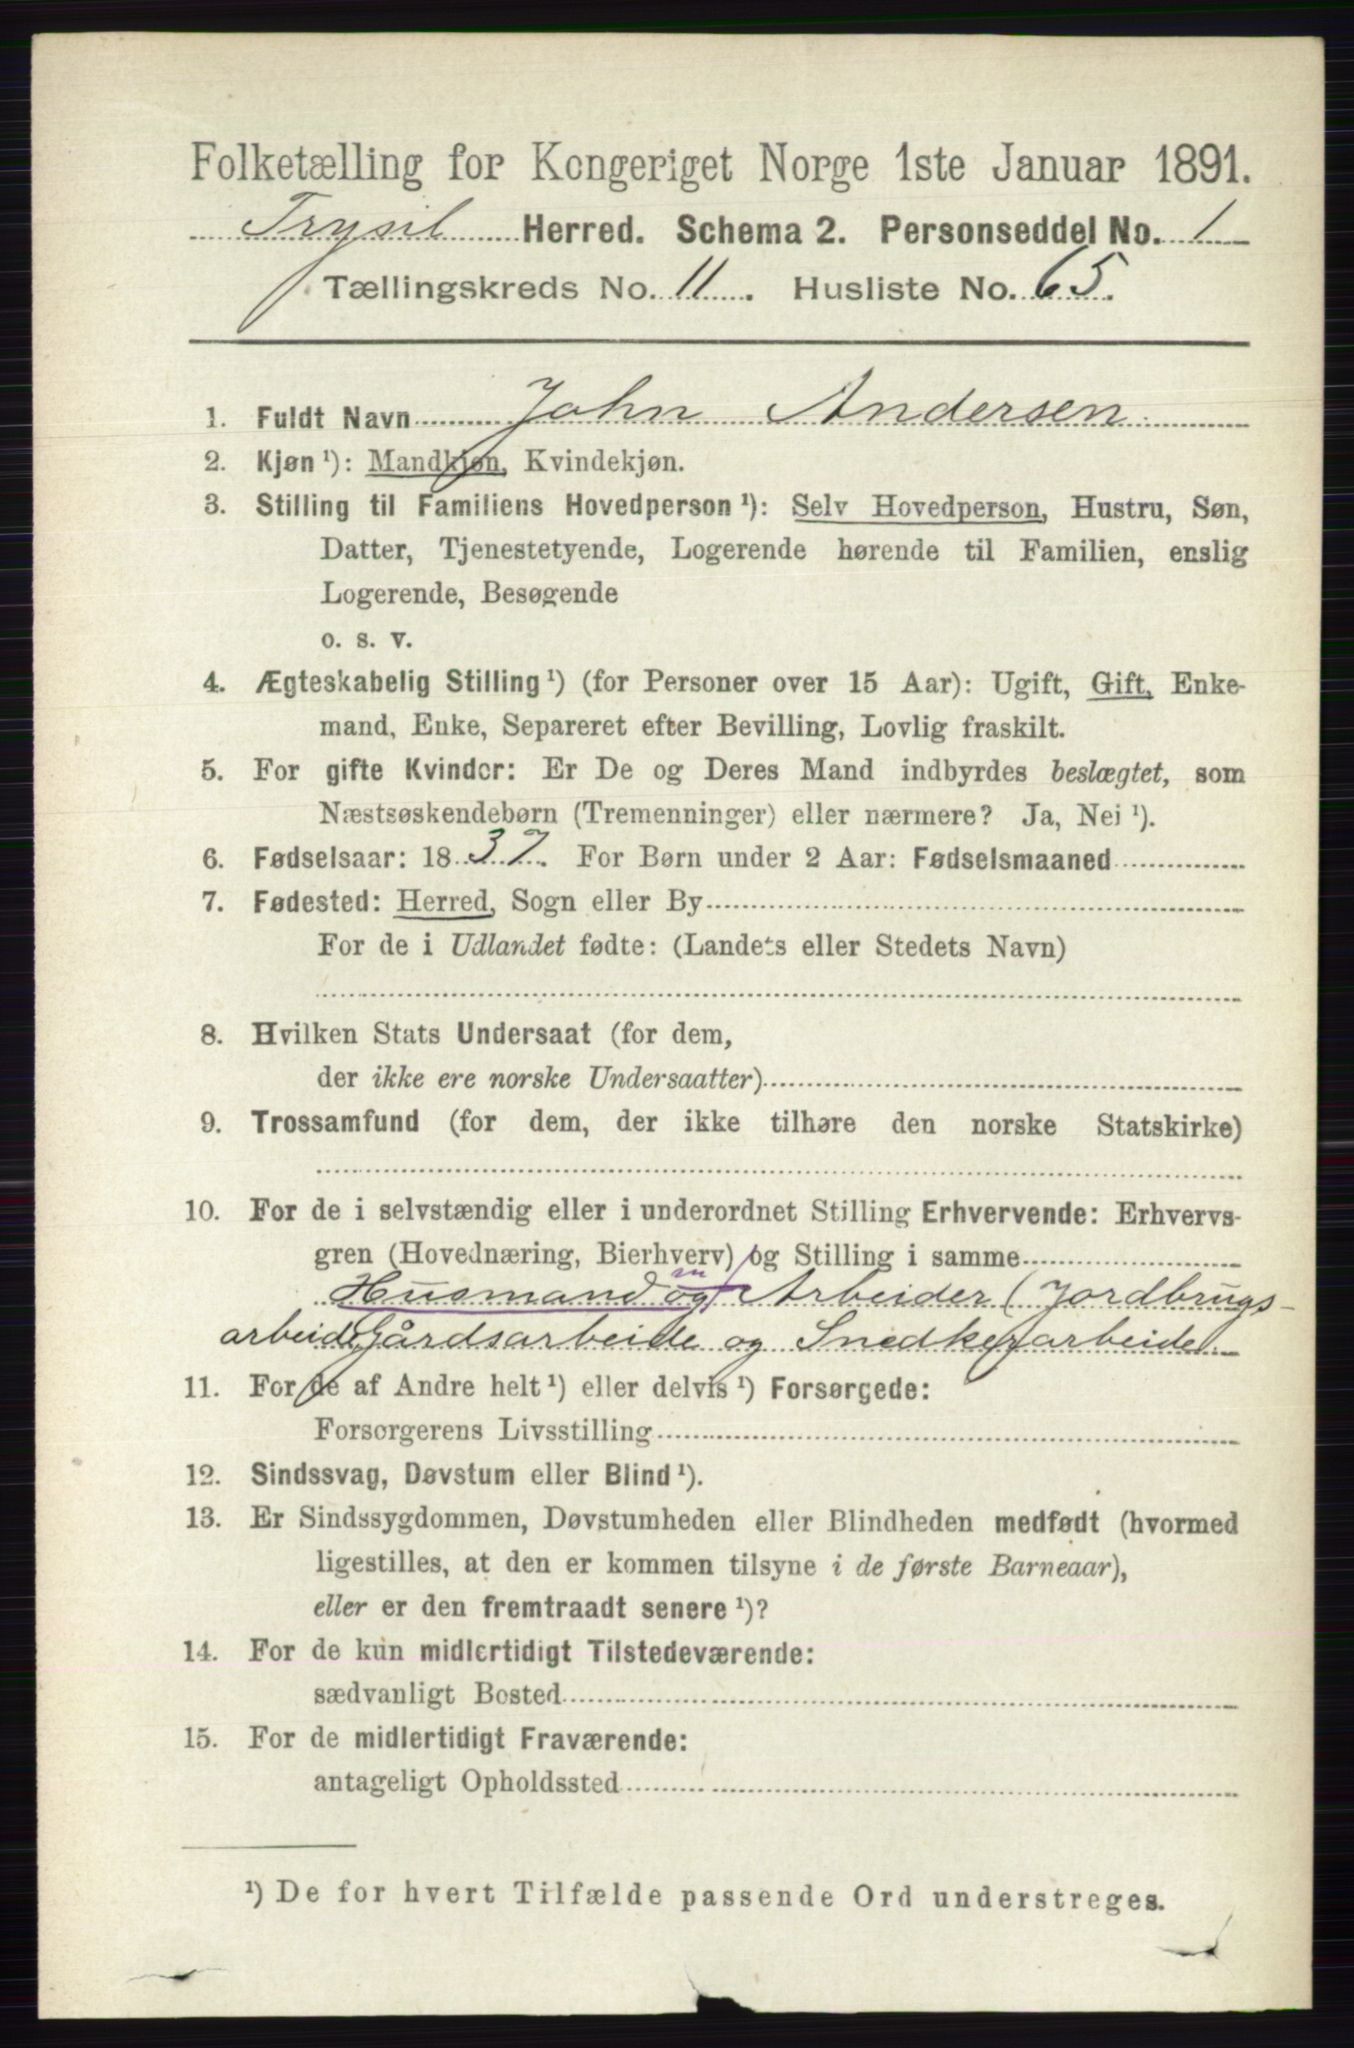 Folketælling for Kongeriget Norge 1ste Januar 1891.
Trysil Herred. Schema 2. Personseddel No. 1
Tællingskreds No. 11. Husliste No. 65.
1. Fuldt Navn John Andersen
2. Kjøn ¹): Mandkjøn, Kvindekjøn.
3. Stilling til Familiens Hovedperson ¹): Selv Hovedperson, Hustru, Søn,
Datter, Tjenestetyende, Logerende hørende til Familien, enslig
Logerende, Besøgende
o. s. v.
4. Ægteskabelig Stilling ¹) (for Personer over 15 Aar): Ugift, Gift, Enke-
mand, Enke, Separeret efter Bevilling, Lovlig fraskilt.
5. For gifte Kvinder: Er De og Deres Mand indbyrdes beslægtet, som
Næstsøskendebørn (Tremenninger) eller nærmere? Ja, Nei ¹).
6. Fødselsaar: 1837. For Børn under 2 Aar: Fødselsmaaned
7. Fødested: Herred, Sogn eller By
For de i Udlandet fødte: (Landets eller Stedets Navn)
8. Hvilken Stats Undersaat (for dem,
der ikke ere norske Undersaatter)
9. Trossamfund (for dem, der ikke tilhøre den norske Statskirke)
10. For de i selvstændig eller i underordnet Stilling Erhvervende: Erhvervs-
gren (Hovednæring, Bierhverv) og Stilling i samme
m
Husmand og Arbeider (Jordbrugs-
arbeide Gårdsarbeide og Snedkerarbeide
11. For de af Andre helt ¹) eller delvis ¹) Forsørgede:
Forsørgerens Livsstilling
12. Sindssvag, Døvstum eller Blind ¹).
13. Er Sindssygdommen, Døvstumheden eller Blindheden medfødt (hvormed
ligestilles, at den er kommen tilsyne i de første Barneaar),
eller er den fremtraadt senere ¹)?
14. For de kun midlertidigt Tilstedeværende:
sædvanligt Bosted
15. For de midlertidigt Fraværende:
antageligt Opholdssted
¹) De for hvert Tilfælde passende Ord understreges.